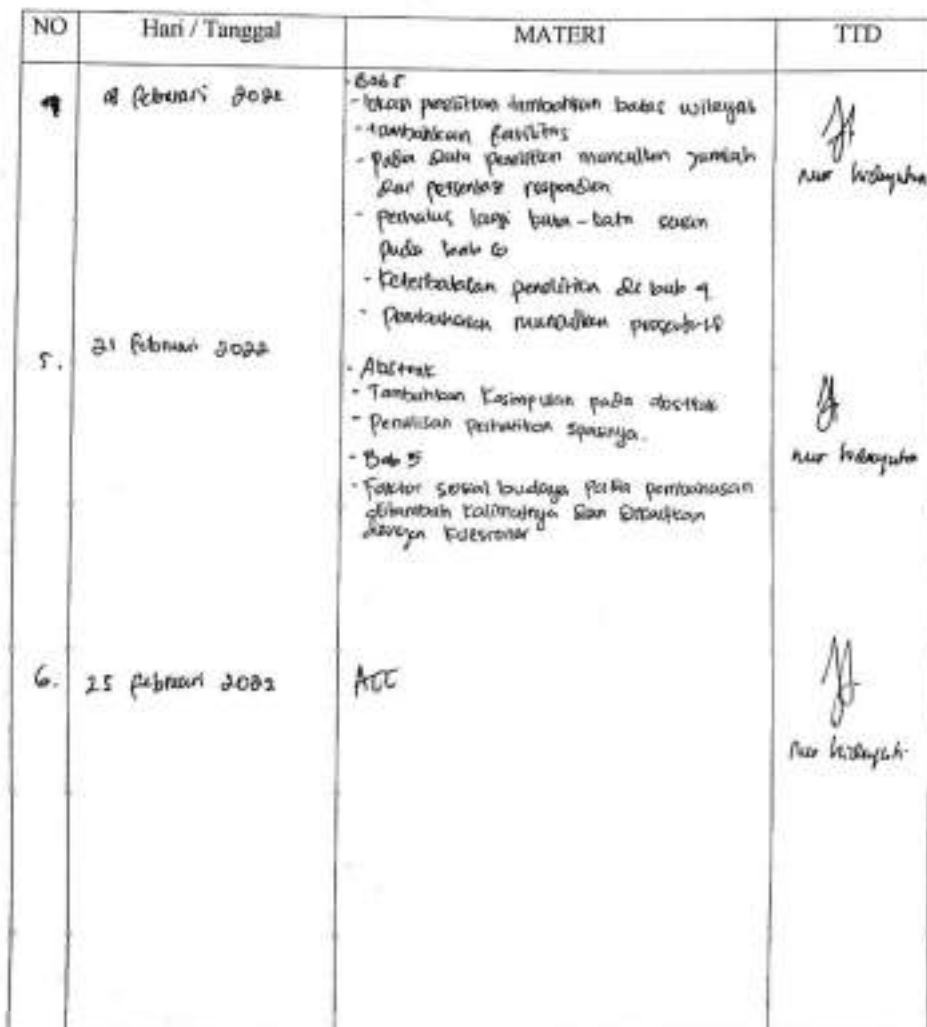 NO Hari / Tanggal MATERI TTD
08 Februari 2022
- Bab 5
- lokasi penelitian tambahkan batas wilayah
- tambahkan fasilitas
- pada Data penelitian munculkan jumlah
dan persentase responden
- perhalus lagi kata-kata saran
pada bab 6
- Keterbatasan penelitian di bab 4
- Pembahasan munculkan
nur hidayatun
5. 21 Februari 2022
- Abstrak
- Tambahkan Kesimpulan pada abstrak
- Penulisan perhatikan spasinya.
- Bab 5
- Faktor sosial budaya pada pembahasan
ditambah kalimatnya dan dikaitkan
dengan kuesioner
nur hidayatun
6. 25 Februari 2022 ACC
nur hidayah